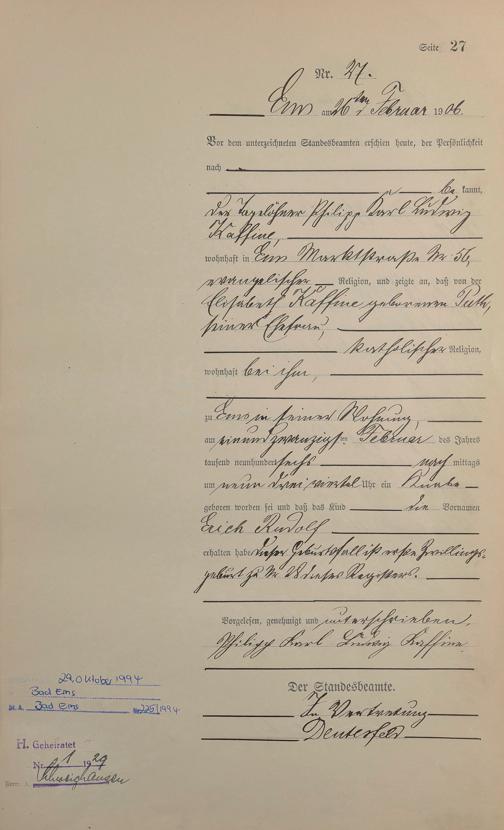 Seite 27
Nr. 27.
Ems am 26ten Februar 1906.
Vor dem unterzeichneten Standesbeamten erschien heute, der Persönlichkeit
nach
be kannt,
der Tagelöhner Philipp Karl Ludwig
Kaffine,
wohnhaft in Ems Marktstraße Nr 56,
evangelischer Religion, und zeigte an, daß von der
Elisabeth Kaffine geborenen Püth,
seiner Ehefrau,
katholischer Religion,
wohnhaft bei ihm,
zu Ems in seiner Wohnung,
am einundzwanzigsten Februar des Jahres
tausend neunhundert sechs nach mittags
um neun drei viertel Uhr ein Knabe
geboren worden sei und daß das Kind die Vornamen
Erich Rudolf
erhalten habe dieser Geburtsfall ist erste Zwillings-
geburt zu Nr 28 dieses Registers.
Vorgelesen, genehmigt und unterschrieben,
Philipp Karl Ludwig Kaffine
Der Standesbeamte.
In Vertretung
29. Oktober 1994
Bad Ems
Bad Ems Nr. 225/1994
H. Geheiratet
Nr. 1 1929